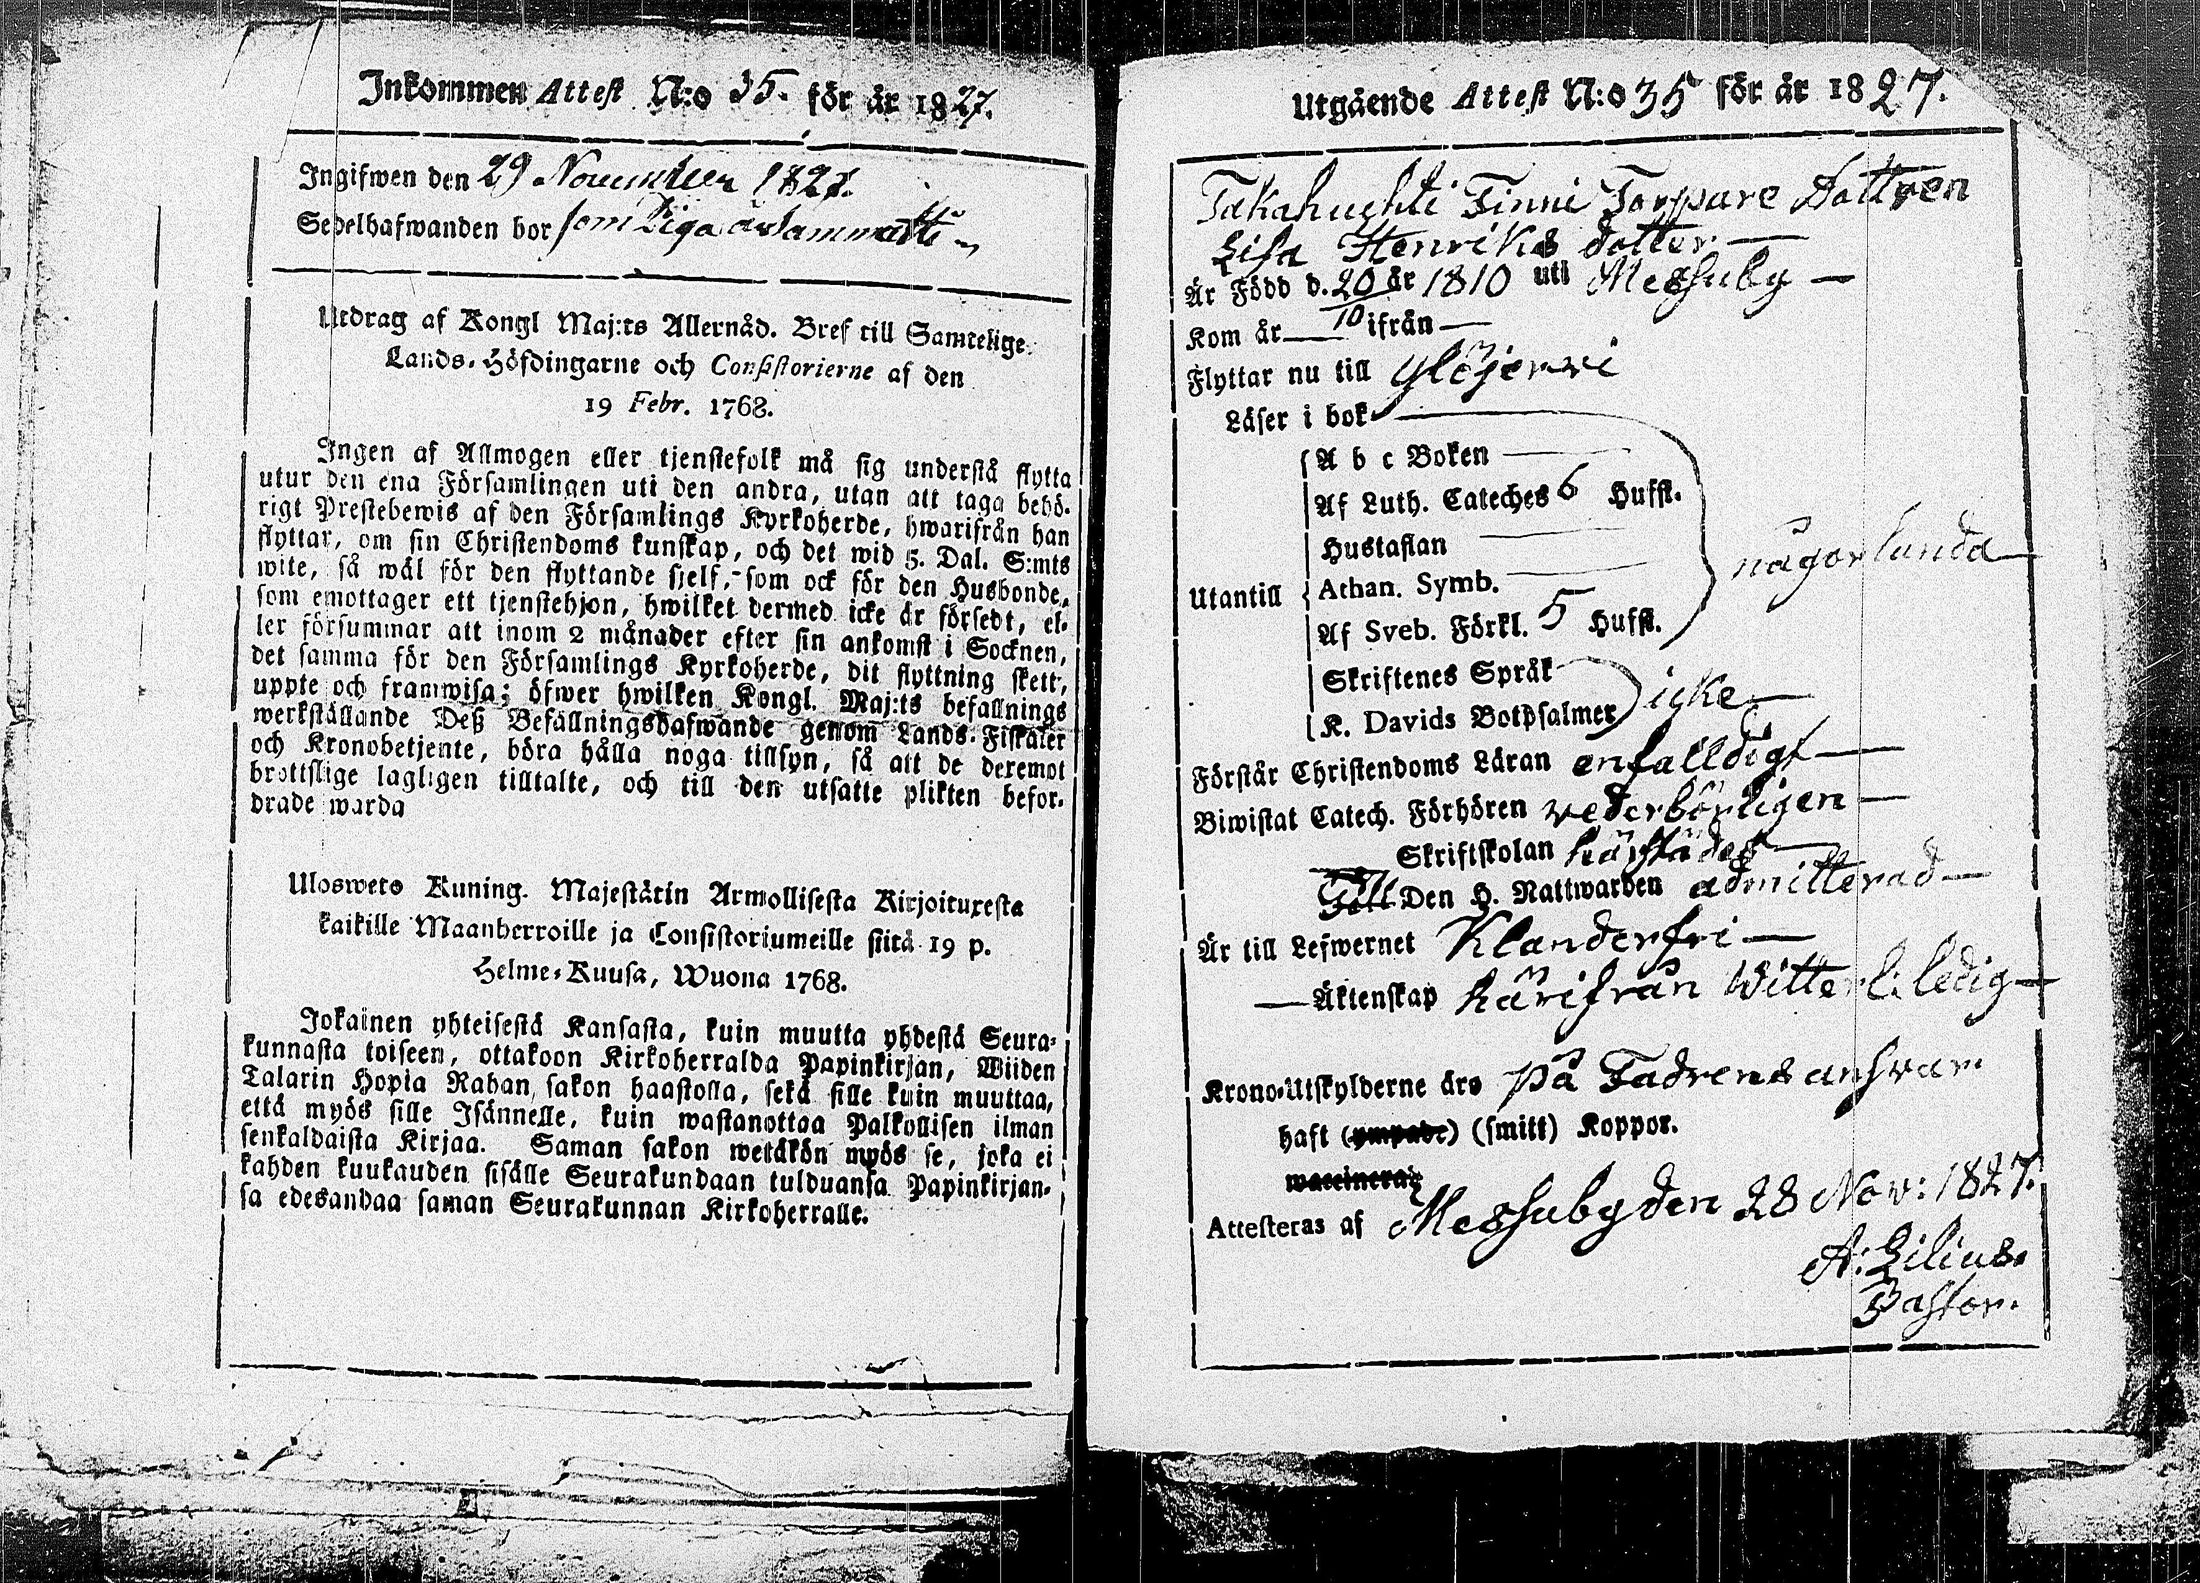 Inkommen Attest N:o 35. för år 1827.
Ingifwen den 29 November 1827.
Sedelhafwanden bor som Piga
Utdrag af Kongl Maj:ts Allernåd. Bref till Samtelige
Lands-Höfdingarne och Consistorierne af den
19 Febr. 1768.
Ingen af Allmogen eller tjenstefolk må sig understå flytta
utur den ena Församlingen uti den andra, utan att taga behö-
rigt Prestebewis af den Församlings Kyrkoherde, hwarifrån han
flyttar, om sin Christendoms kunskap, och det wid 5. Dal. S:mts
wite, så wäl för den flyttande sjelf, som ock för den Husbonde,
som emottager ett tjenstehjon, hwilket dermed icke är försedt, el-
ler försummar att inom 2 månader efter sin ankomst i Socknen,
det samma för den Församlings Kyrkoherde, dit flyttning skett,
uppte och framwisa; öfwer hwilken Kongl. Maj:ts befallnings
werkställande Deß Befällningshafwande genom Lands-Fiskaler
och Kronobetjente, böra hålla noga tillsyn, så att de deremot
brottslige lagligen tilltalte, och till den utsatte plikten befor-
drade warda
Ulosweto Kuning. Majestätin Armollisesta Kirjoituxesta
kaikille Maanherroille ja Consistoriumeille siitä 19 p.
Helme-Kuusa, Wuona 1768.
Jokainen yhteisestä Kansasta, kuin muutta yhdestä Seura-
kunnasta toiseen, ottakoon Kirkoherralda Papinkirjan, Wiiden
Talarin Hopia Rahan sakon haastolla, sekä sille kuin muuttaa,
että myös sille Isännelle, kuin wastanottaa Palkollisen ilman
senkaldaista Kirjaa. Saman sakon wetäkön myös se, joka ei
kahden kuukauden sisälle Seurakundaan tulduansa Papinkirjan-
sa edesandaa saman Seurakunnan Kirkoherralle.
Utgående Attest N:o 35 för år 1827.
Takahuhti Finni Torpare Dottren
Lisa Henriks dotter
Är Född d. 20/10 år 1810 uti Messuby
Kom år ifrån
Flyttar nu till Ylöjerwi
Läser i bok
A b c Boken
Af Luth. Cateches 6 Hufst.
Hustaflan
någorlunda
Utantill Athan. Symb.
Af Sveb. Förkl. 5 Hufst.
Skriftenes Språk
icke
K. Davids Botpsalmer
Förstår Christendoms Läran enfalldigt
Biwistat Catech. Förhören vederbörligen
Skriftskolan härstädes
Till Den H. Nattwarden admitterad
Är till Lefwernet Klanderfri
Äktenskap härifrån Witterl: ledig
Krono-Utskylderne äro på Fadrens answar.
haft (ympade) (smitt) Koppor.
waccinerad
Attesteras af Messuby den 28 Nov: 1827.
A: Lilius.
Pastor.